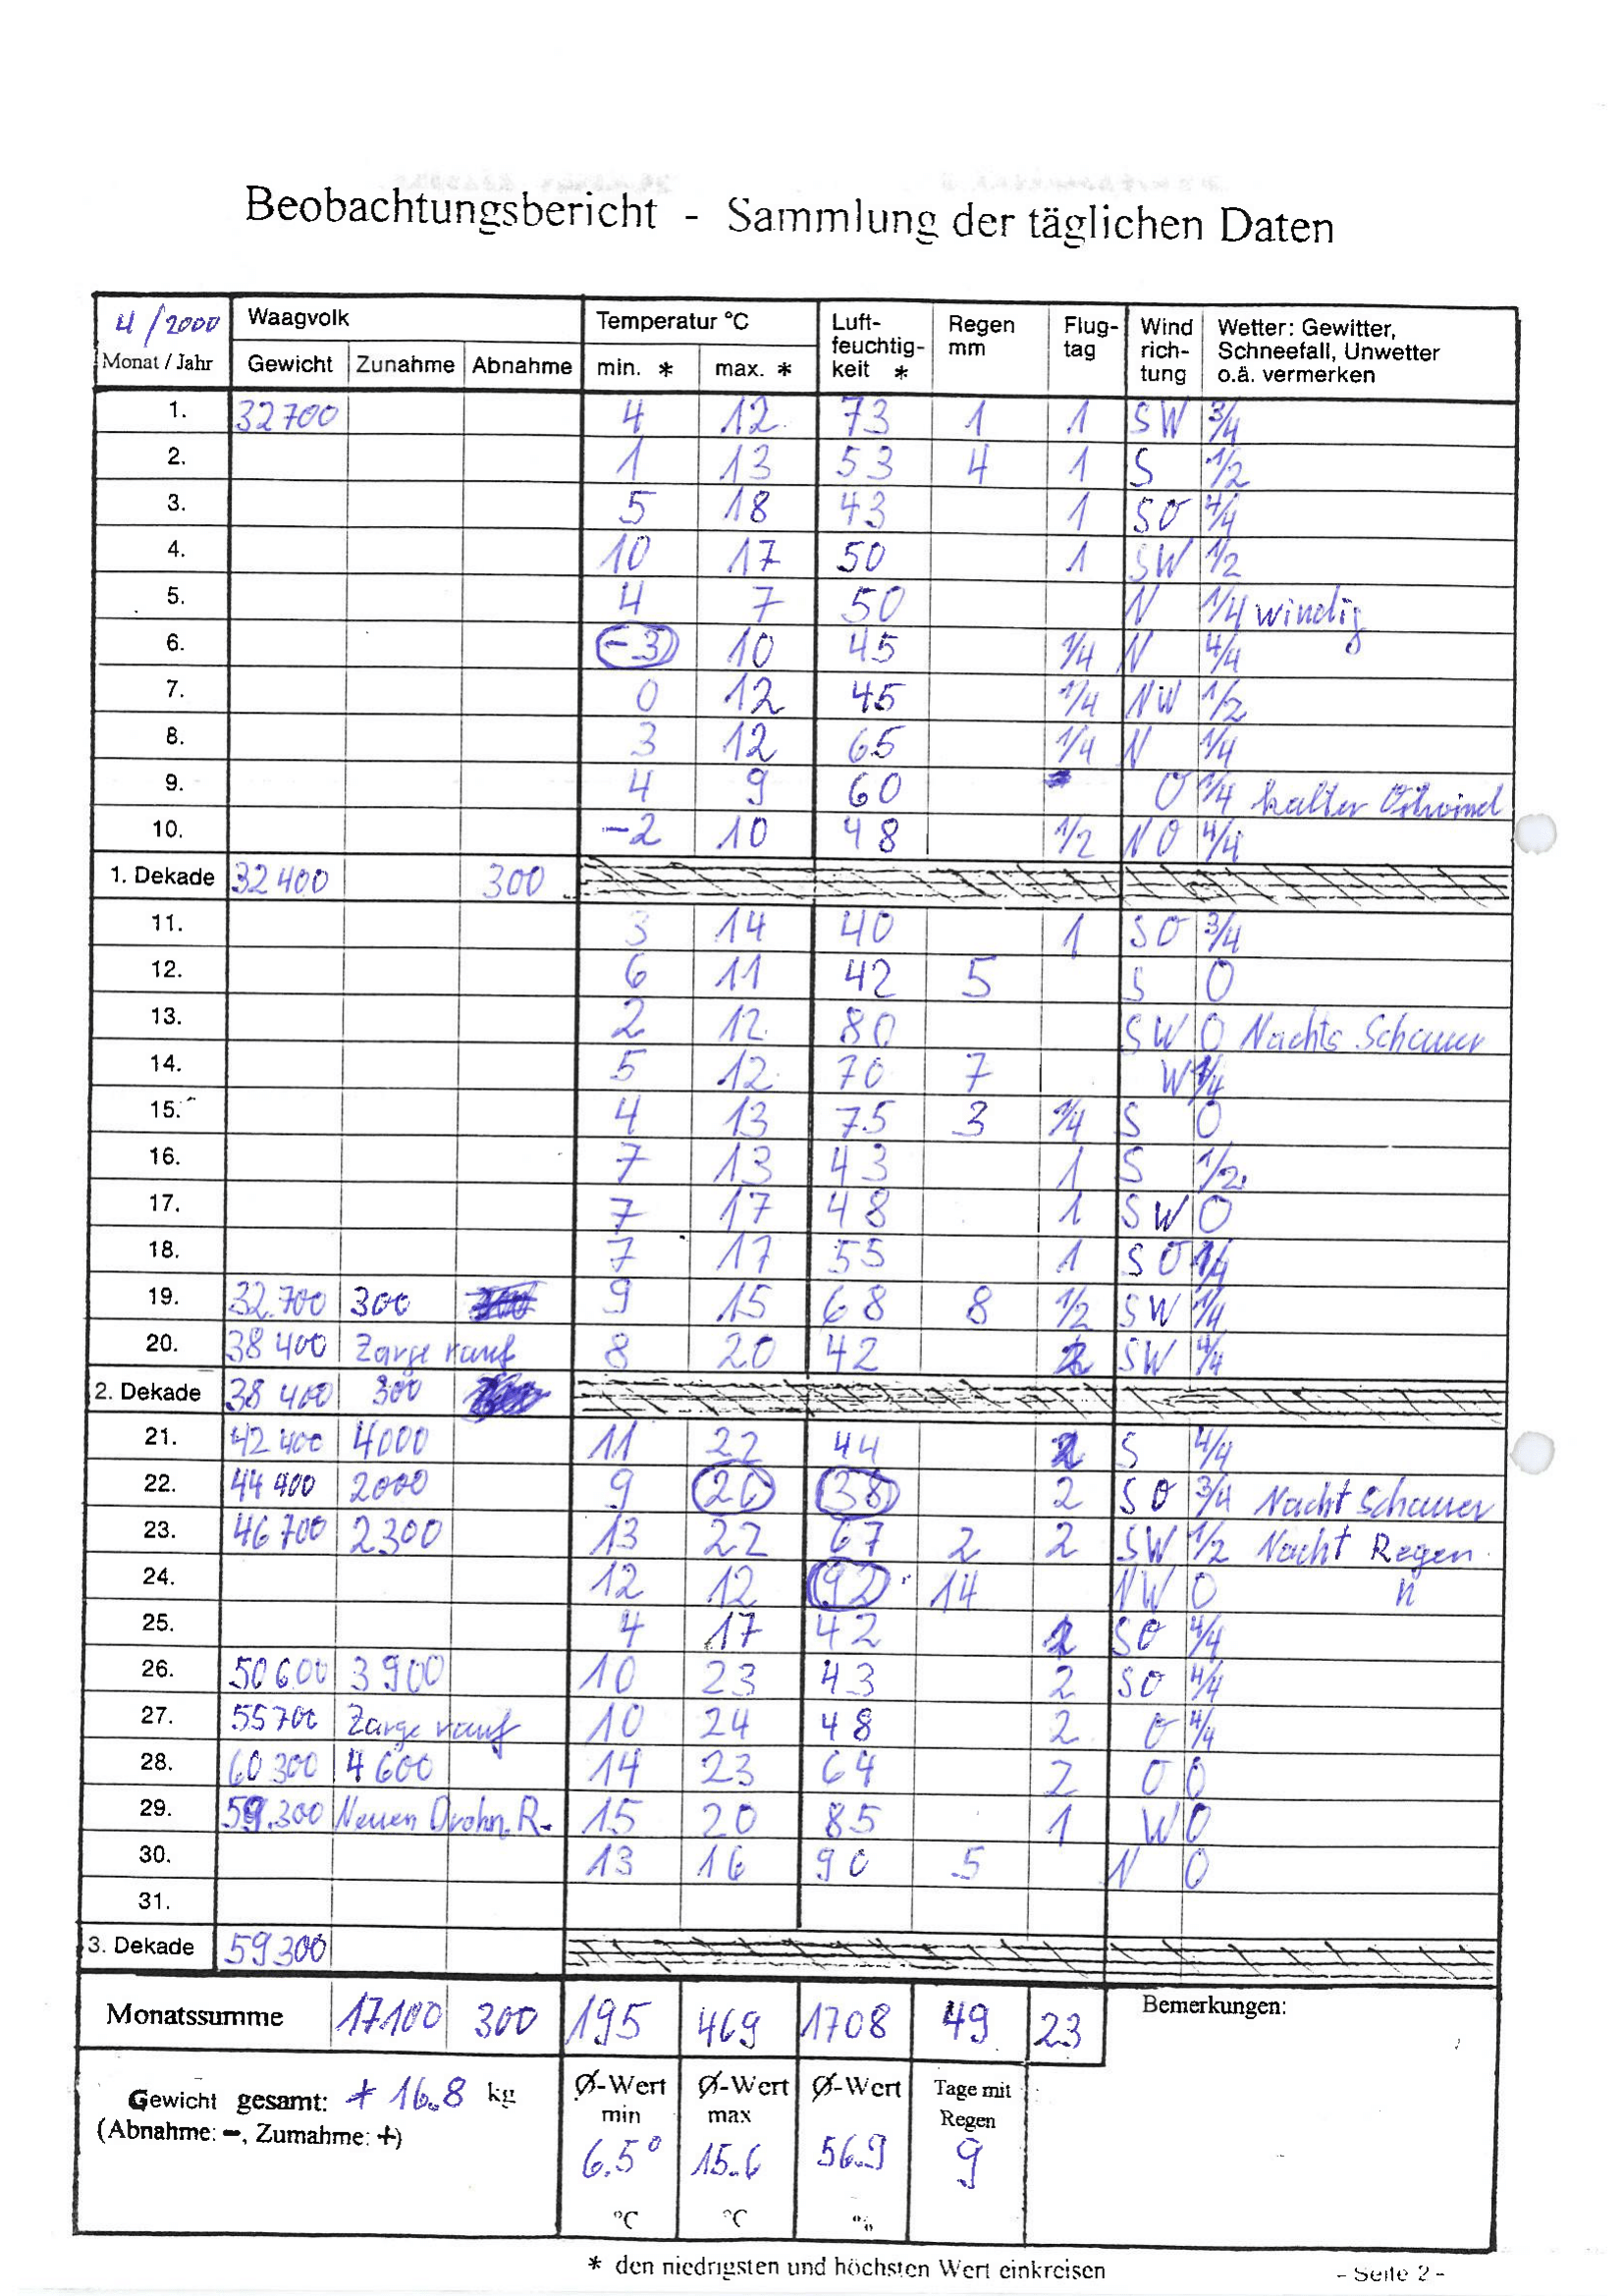 Beobachtungsbericht - Sammlung der täglichen Daten
4/2000 Waagvolk Temperatur °C Luft- Regen Flug- Wind Wetter: Gewitter,
feuchtig- mm tag rich- Schneefall, Unwetter
Monat / Jahr Gewicht Zunahme Abnahme min. * max. * keit * tung o.ä. vermerken
1. 32700 4 12. 73 1 1 SW 3/4
2. 1 13 53 4 1 S 1/2
3. 5 18 43 1 SO 4/4
4. 10 17 50 1 SW 1/2
5. 4 7 50 N 1/4 windig
6. -3 10 45 1/4 N 4/4
7. 0 12 45 1/4 NW 1/2
8. 3 12 65 1/4 N 1/4
9. 4 9 60 O 1/4 kalter Ostwind
10. -2 10 48 1/2 NO 4/4
1. Dekade 32400 300
11. 3 14 40 1 SO 3/4
12. 6 11 42 5 S 0
13. 2 12. 80 SW 0 Nachts Schauer
14. 5 12. 70 7 W 1/4
15. 4 13 75 3 1/4 S 0
16. 7 13 43 1 S 1/2.
17. 7 17 48 1 SW 0
18. 7 17 55 1 SO
19. 32.700 300 9 15 68 8 1/2 SW 1/4
20. 38400 Zarge rauf 8 20 42 2 SW 4/4
2. Dekade 38400 300
21. 42400 4000 11 22 44 2 S 4/4
22. 44400 2000 9 26 38 2 SO 3/4 Nacht Schauer
23. 46700 2300 13 22 67 2 2 SW 1/2 Nacht Regen.
24. 12 12 92 14 NW 0 "
25. 4 17 42 SO 4/4
26. 50600 3900 10 23 43 2 SO 4/4
27. 55700 Zarge rauf 10 24 48 2 O 4/4
28. 60300 4600 14 23 64 2 O 0
29. 59.300 Neuen Drohn.R. 15 20 85 1 W 0
30. 13 16 90 5 N 0
31.
3. Dekade 59300
Monatssumme 17100 300 195 469 1708 49 23 Bemerkungen:
Gewicht gesamt: + 16.8 kg Ø-Wert Ø-Wert Ø-Wert Tage mit
(Abnahme: -, Zumahme: +) min max Regen
6.5° 15.6 56.9 9
°C °C %
* den niedrigsten und höchsten Wert einkreisen
- Seite 2 -